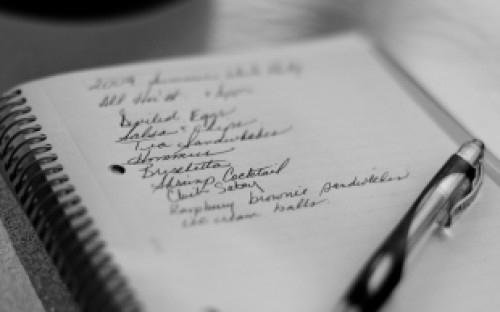 2009 Summer White Party
All Hor'd
Deviled Eggs
Salsa + Chips
Tea Sandwiches
Hommus
Bruschetta
Shrimp Cocktail
Raspberry brownie sandwiches
ice cream balls